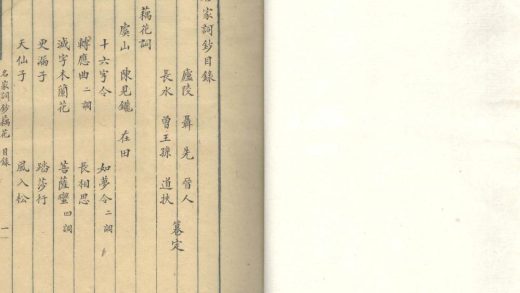 名家詞鈔目錄
廬陵 聶先 晉人
長水 曾王孫 道扶
篹定
藕花詞
虞山 陳見鑨 在田
十六字令 如夢令二調
轉應曲二調 長相思
減字木蘭花 菩薩蠻四調
更漏子 踏莎行
天仙子 風入松
名家詞鈔藕花 目錄 一